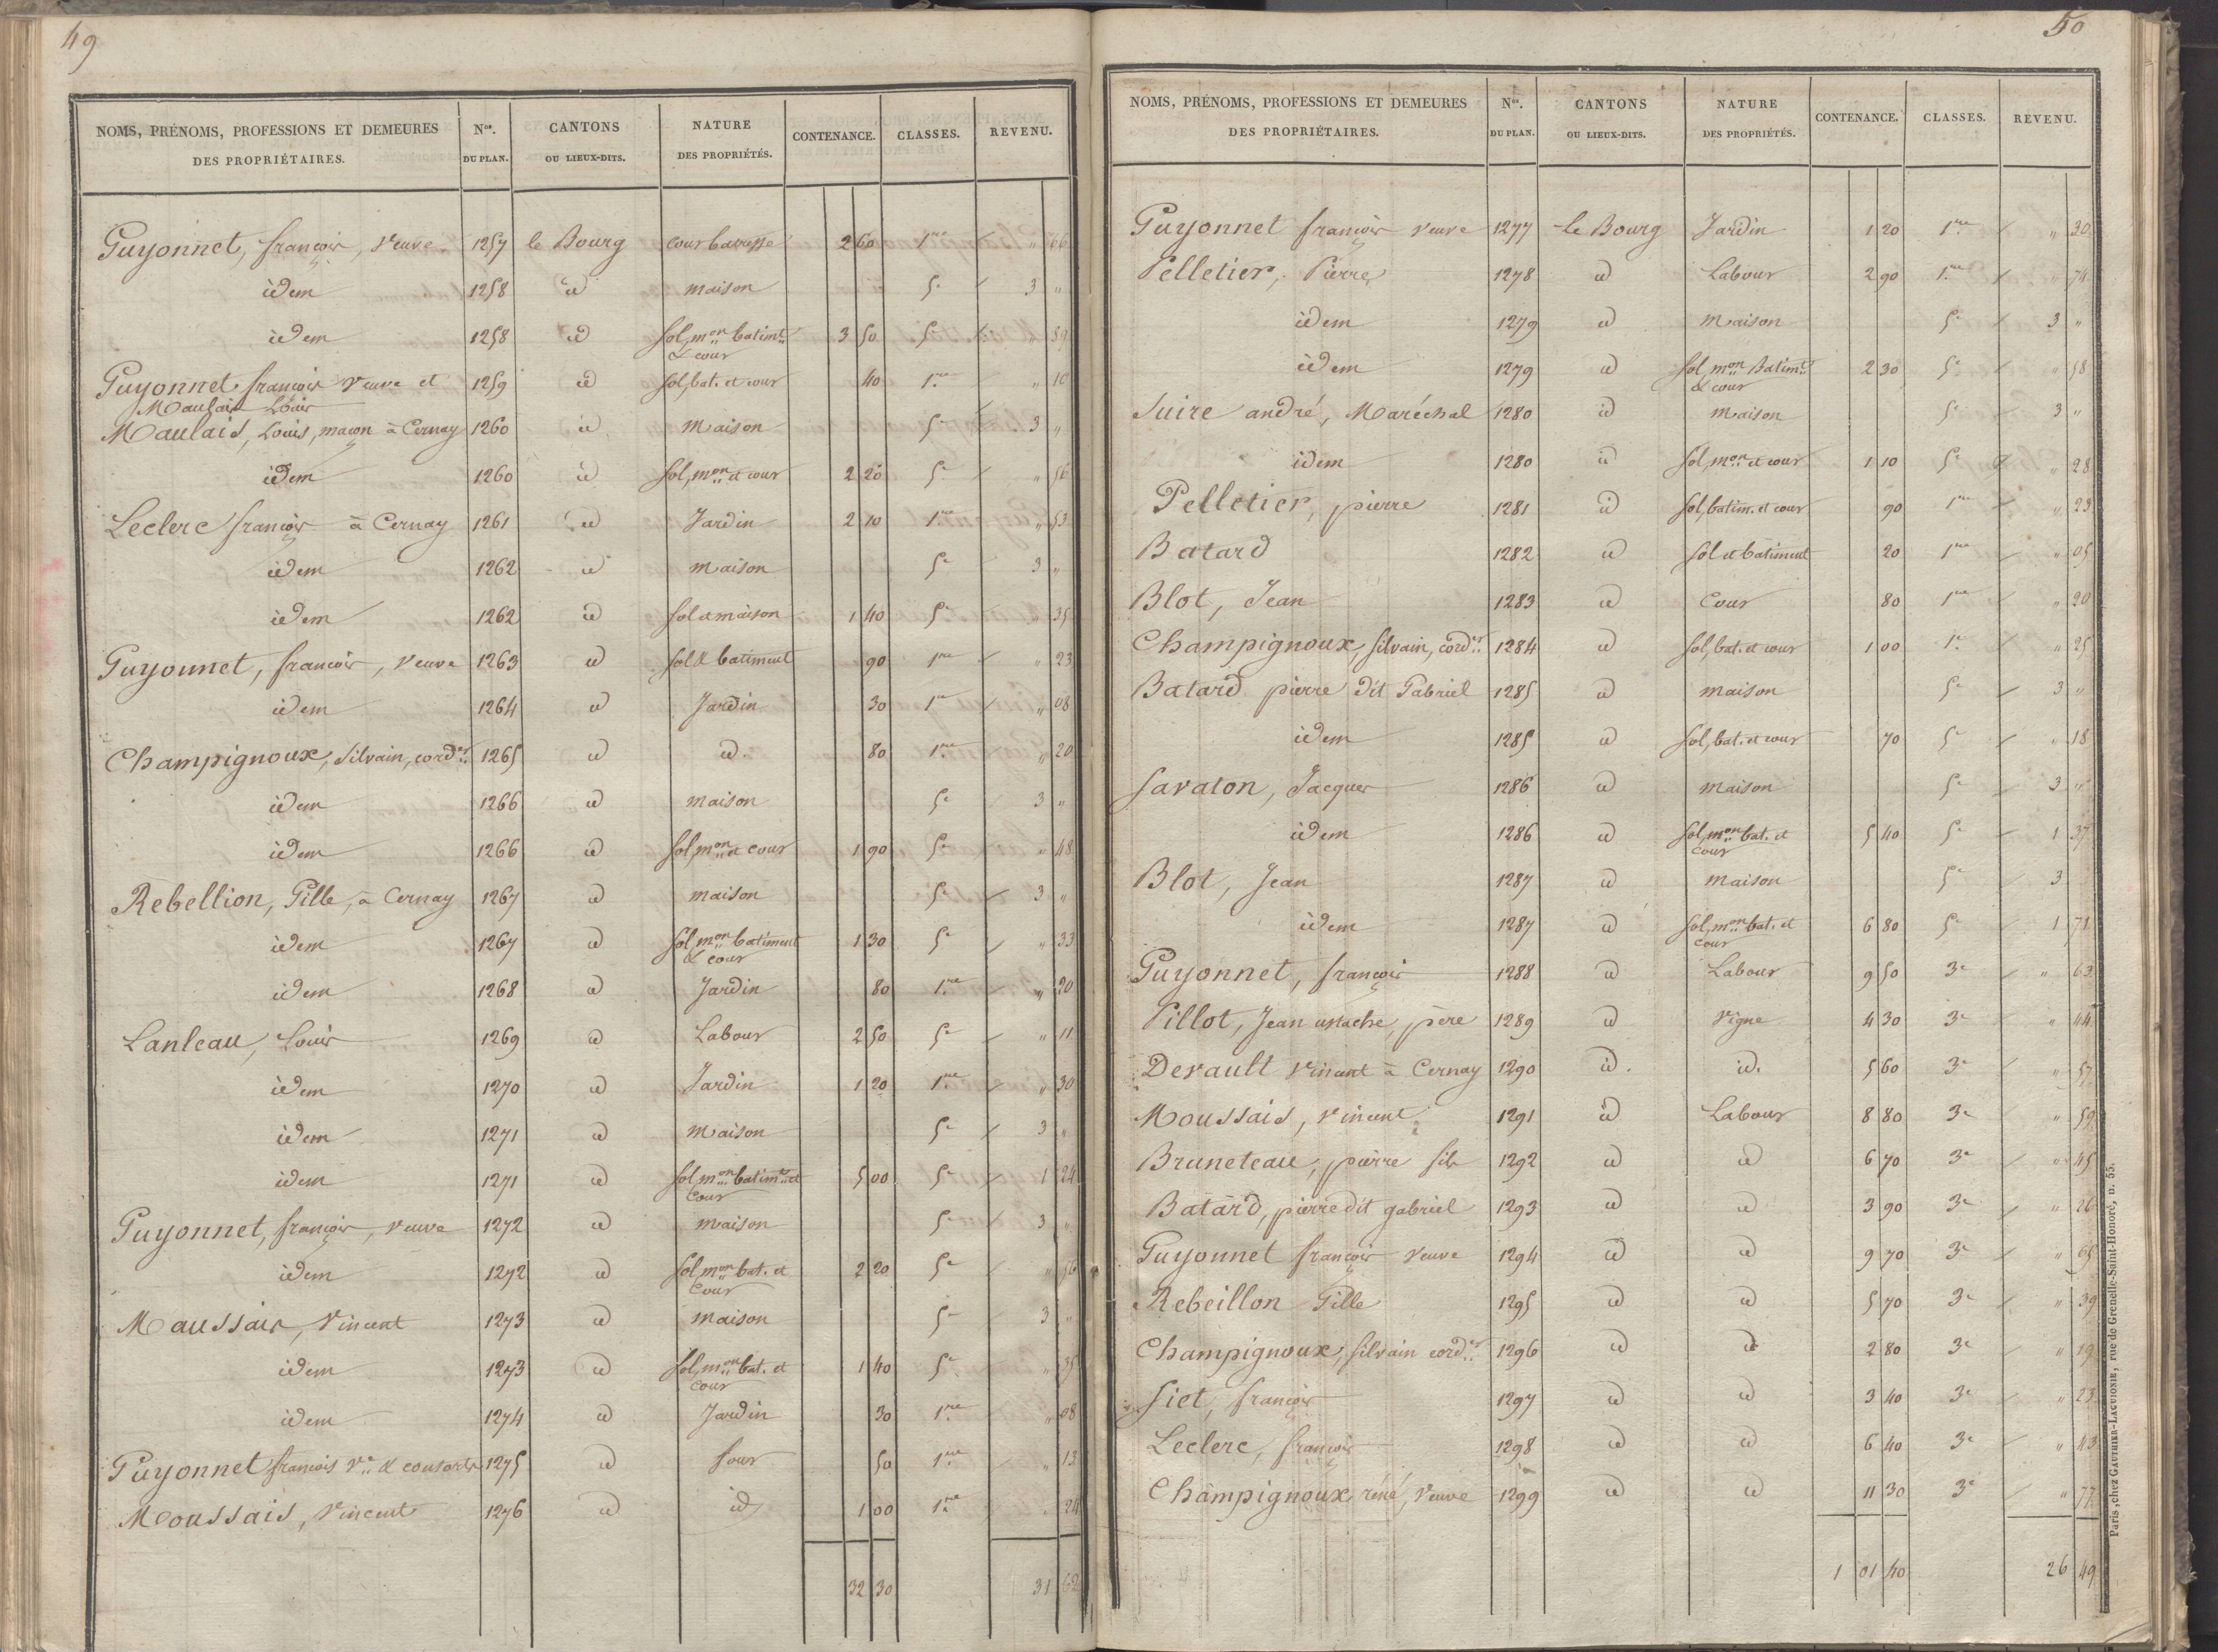 49
NOMS, PRÉNOMS, PROFESSIONS ET DEMEURES DES PROPRIÉTAIRES. Nos. DU PLAN. CANTONS OU LIEUX-DITS. NATURE DES PROPRIÉTÉS. CONTENANCE. CLASSES. REVENU.
Guyonnet, françois, veuve 1257 le Bourg cour bateresse 2 60 1re " 66
idem 1258 id maison 5e 3 "
idem 1258 id sol, mon batimts 3 50 5e
& cour
Guyonnet françois veuve et 1259 id sol, bat. et cour 40 1re " 10
Maulais Louis
Maulais, Louis, maçon à Cernay 1260 id maison 5e 3 "
idem 1260 id sol, mon et cour 2 20 5e " 56
Leclerc françois à Cernay 1261 id Jardin 2 10 1re " 53
idem 1262 id maison 5e 3 "
idem 1262 id sol et maison 1 40 5e " 35
Guyonnet, françois, veuve 1263 id sol & batiment 90 1re " 23
idem 1264 id Jardin 30 1re " 08
Champignoux, Silvain, corder 1265 id id. 80 1re " 20
idem 1266 id maison 5e 3 "
idem 1266 id sol, mon et cour 1 90 5e " 48
Rebellion, Gille, à Cernay 1267 id maison 5e 3 "
idem 1267 id sol, mon batiment 1 30 5e " 33
& cour
idem 1268 id Jardin 80 1re " 20
Lanleau, Louis 1269 id Labour 2 50 5e " 11
idem 1270 id Jardin 1 20 1re " 30
idem 1271 id maison 5e 3 "
idem 1271 id sol, mon batimts et 5 00 5e 1 24
cour
Guyonnet, françois, veuve 1272 id maison 5e 3 "
idem 1272 id sol, mon bat. et 2 20 5e " 56
cour
Maussais, Vincent 1273 id maison 5e 3 "
idem 1273 id sol, mon bat. et 1 40 5e " 35
cour
idem 1274 id Jardin 30 1re " 08
Guyonnet françois ve & consorts 1275 id four 50 1re " 13
Moussais, Vincent 1276 id id 1 00 1re " 24
32 30 31 62
50
NOMS, PRÉNOMS, PROFESSIONS ET DEMEURES DES PROPRIÉTAIRES. Nos. DU PLAN. CANTONS OU LIEUX-DITS. NATURE DES PROPRIÉTÉS. CONTENANCE. CLASSES. REVENU.
Guyonnet françois veuve 1277 le Bourg Jardin 1 20 1re " 30
Pelletier, Pierre 1278 id Labour 2 90 1re " 74
idem 1279 id maison 5e 3 "
idem 1279 id sol, mon Batimts 2 30 5e " 58
& cour
Suire andré, Maréchal 1280 id maison 5e 3 "
idem 1280 id sol, mon et cour 1 10 5e " 28
Pelletier, pierre 1281 id sol, batim. et cour 90 1re " 23
Batard 1282 id sol et bâtiment 20 1re " 05
Blot, Jean 1283 id Cour 80 1re " 20
Champignoux, silvain, corder 1284 id sol, bat. et cour 1 00 1e " 25
Batard pierre dit Gabriel 1285 id maison 5e 3 "
idem 1285 id sol, bat. et cour 70 5e " 18
Savaton, Jacques 1286 id maison 5e 3 "
idem 1286 id sol, mon bat. et 5 40 5e 1 37
cour
Blot, Jean 1287 id maison 5e 3
idem 1287 id sol, mon bat. et 6 80 5e 1 71
cour
Guyonnet, françois 1288 id Labour 9 50 3e " 63
Pillot, Jean ustache, père 1289 id vigne 4 30 3e " 44
Derault vincent à Cernay 1290 id. id. 5 60 3e " 57
Moussais, vincent 1291 id Labour 8 80 3e " 59
Bruneteau, pierre fils 1292 id id 6 70 3e " 45
Batard, pierre dit gabriel 1293 id id 3 90 3e " 26
Guyonnet françois veuve 1294 id id 9 70 3e " 65
Rebeillon Gille 1295 id id 5 70 3e " 39
Champignoux, silvain corder 1296 id id 2 80 3e " 19
Siet, françois 1297 id id 3 40 3e " 23
Leclerc, françois 1298 id id 6 40 3e " 43
Champignoux réné, veuve 1299 id id 11 30 3e " 77
1 01 40 26 49
Paris, chez GAUTHIER-LAGUIONIE, rue de Grenelle-Saint-Honoré, n. 55.